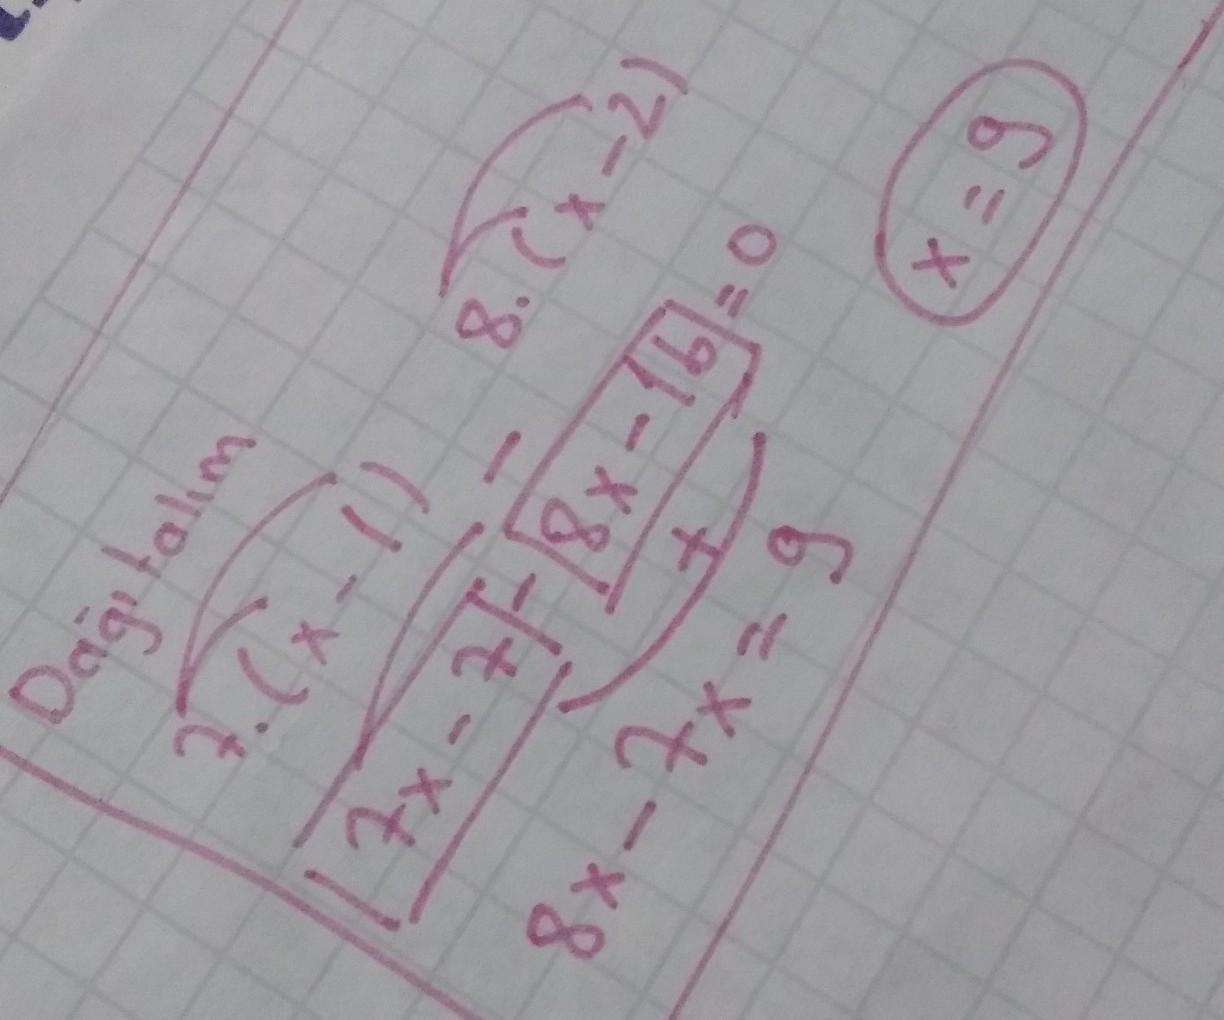 Dağıtalım
7.(x-1) - 8.(x-2)
7x-7 - 8x-16 = 0
+
8x - 7x = 9
x = 9